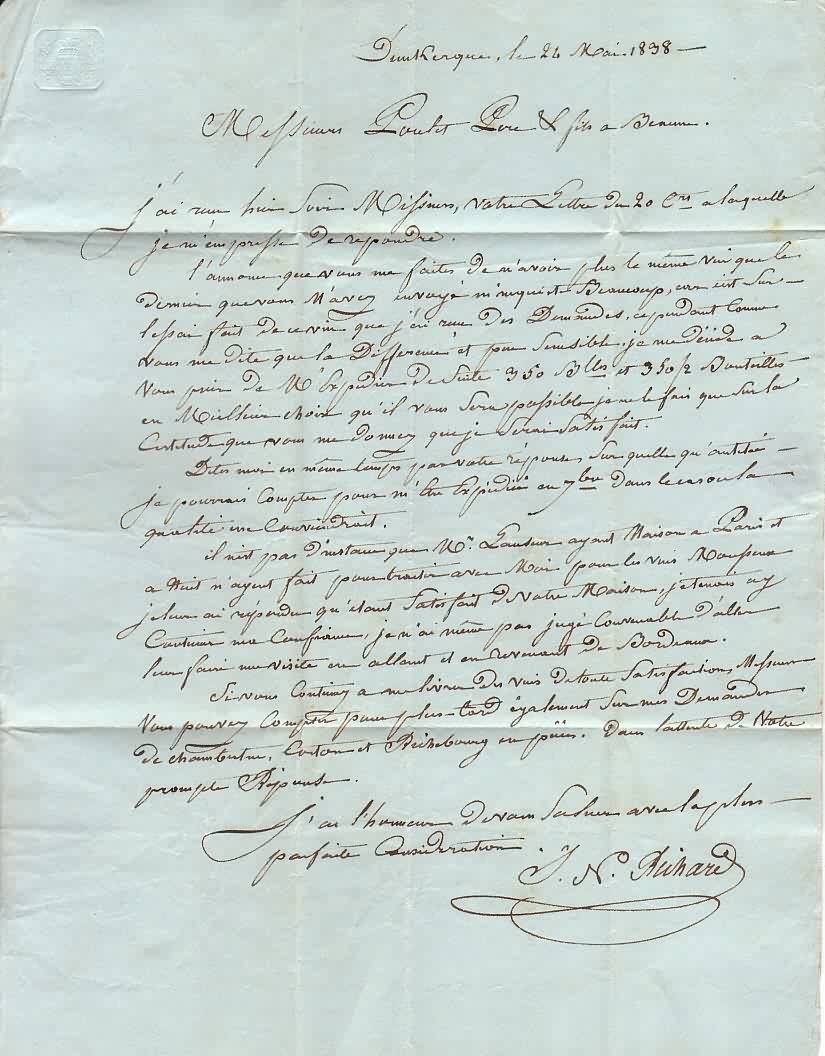 Dunkerque, le 24 Mai 1838 —
Messieurs Poulet Pere & fils a Beaune.
J'ai reçu hier Soir Messieurs, votre Lettre du 20 Crt a laquelle
je m'empresse de repondre.
l'annonce que vous me faites de n'avoir plus le même vin que le
dernier que vous m'avez envoyé m'inquiete Beaucoup, car c'est Sur —
l'essai fait de ce vin que j'ai reçu des Demandes, cependant Comme
vous me dite que la Difference est peu Sensible, je me décide a
vous prier de M'Expedier de Suite 350 Blles et 350/2 Bouteilles
en Meilleur choix qu'il vous Sera possible je ne le fais que Sur la
Certitude que vous me donnez que je Serai Satisfait.
Dites moi en même temps par votre reponse, Sur quelle quantité —
je pourrais Compter pour m'être Expédiée en 7bre dans le cas ou la
qualité me Conviendrait.
il n'est pas d'instance que Mr. ayant Maison a Paris et
a Nuit n'ayent fait pour traiter avec Moi pour les vins Mousseux
je leur ai répondu qu'étant Satisfait de Votre Maison, je tenois a y
Continuer ma Confiance, je n'ai même pas jugé Convenable d'aller
leur faire une visite en allant et en revenant de Bordeaux.
Si vous Continuez a me livrer des vins de toute Satisfaction, Messieurs
vous pouvez Compter pour plus-tard également Sur mes Demandes
de chambertin, Corton et Richebourg en pièces. Dans l'attente de Votre
prompte Réponse.
J'ai l'honneur de vous Saluer avec la plus —
parfaite Consideration.
J. N. Richard